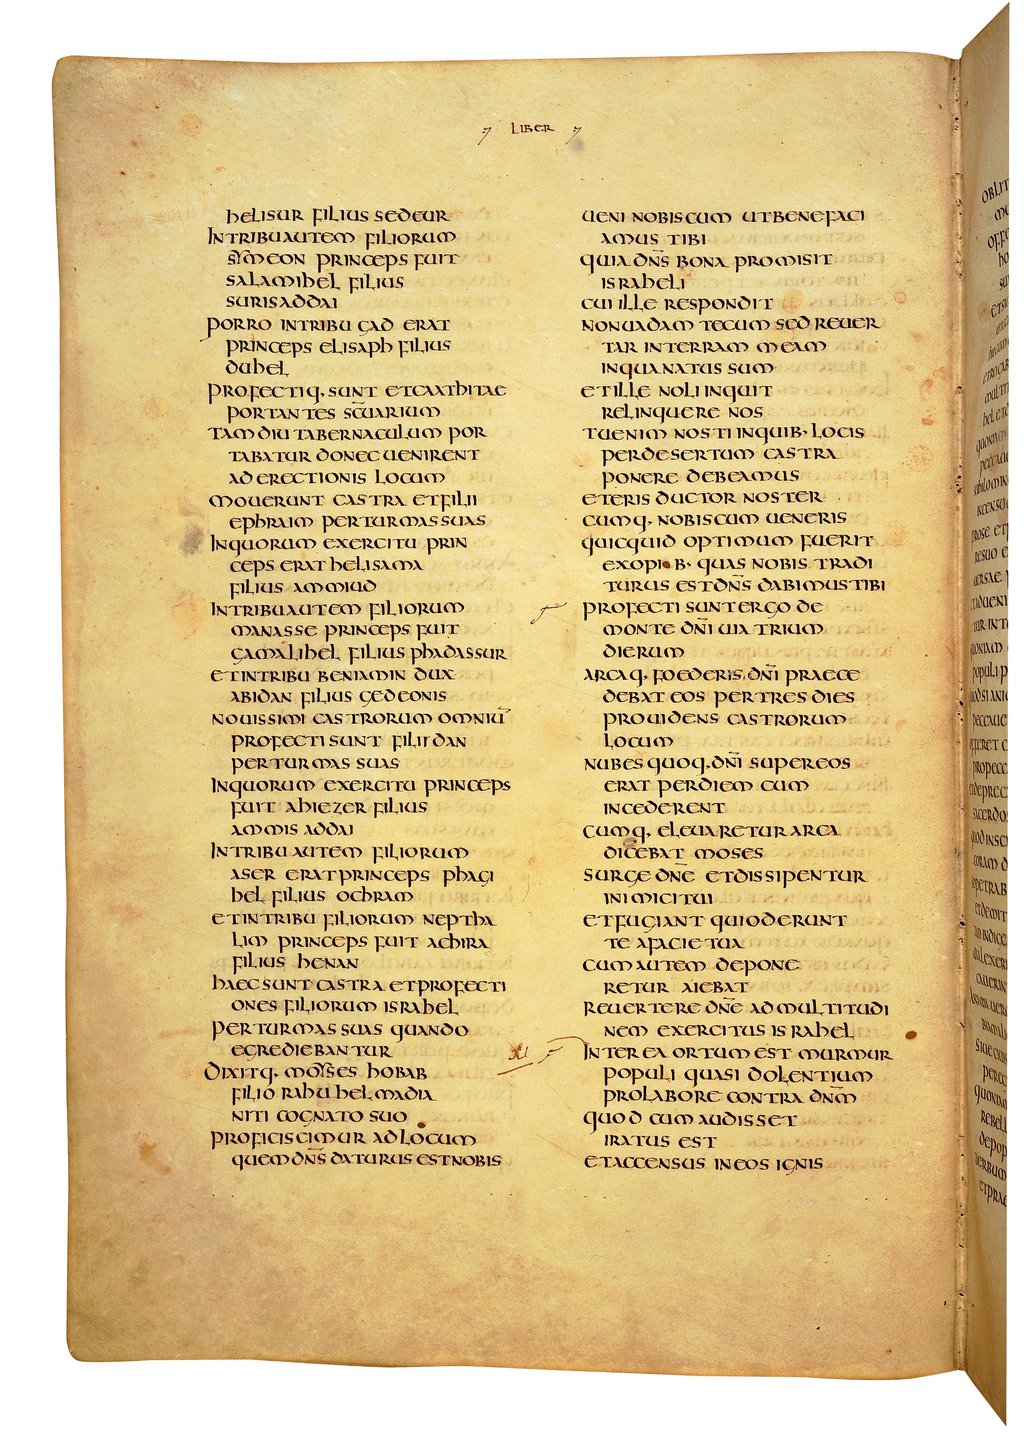 LIBER
HELISUR FILIUS SEDEUR
IN TRIBU AUTEM FILIORUM
SYMEON PRINCEPS FUIT
SALAMIHEL FILIUS
SURISADDAI
PORRO IN TRIBU GAD ERAT
PRINCEPS ELISAPH FILIUS
DUHEL
PROFECTIQ· SUNT ET CAATHITAE
PORTANTES SC̄UARIUM
TAMDIU TABERNACULUM POR
TABATUR DONEC UENIRENT
AD ERECTIONIS LOCUM
MOUERUNT CASTRA ET FILII
EPHRAIM PER TURMAS SUAS
IN QUORUM EXERCITU PRIN
CEPS ERAT HELISAMA
FILIUS AMMIUD
IN TRIBU AUTEM FILIORUM
MANASSE PRINCEPS FUIT
GAMALIHEL FILIUS PHADASSUR
ET IN TRIBU BENIAMIN DUX
ABIDAN FILIUS GEDEONIS
NOUISSIMI CASTRORUM OMNIŪ
PROFECTI SUNT FILII DAN
PER TURMAS SUAS
IN QUORUM EXERCITU PRINCEPS
FUIT AHIEZER FILIUS
AMMISADDAI
IN TRIBU AUTEM FILIORUM
ASER ERAT PRINCEPS PHAGI
HEL FILIUS OCHRAM
ET IN TRIBU FILIORUM NEPTHA
LIM PRINCEPS FUIT ACHIRA
FILIUS HENAN
HAEC SUNT CASTRA ET PROFECTI
ONES FILIORUM ISRAHEL
PER TURMAS SUAS QUANDO
EGREDIEBANTUR
DIXITQ· MOYSES HOBAB
FILIO RAHUHEL MADIA
NITI COGNATO SUO
PROFICISCIMUR AD LOCUM
QUEM DN̄S DATURUS EST NOBIS
UENI NOBISCUM UT BENEFACI
AMUS TIBI
QUIA DN̄S BONA PROMISIT
ISRAHELI
CUI ILLE RESPONDIT
NON UADAM TECUM SED REUER
TAR IN TERRAM MEAM
IN QUA NATUS SUM
ET ILLE NOLI INQUIT
RELINQUERE NOS
TU ENIM NOSTI IN QUIB· LOCIS
PER DESERTUM CASTRA
PONERE DEBEAMUS
ET ERIS DUCTOR NOSTER
CUMQ· NOBISCUM UENERIS
QUICQUID OPTIMUM FUERIT
EX OPIB· QUAS NOBIS TRADI
TURUS EST DN̄S DABIMUS TIBI
PROFECTI SUNT ERGO DE
MONTE DN̄I UIA TRIUM
DIERUM
ARCAQ· FOEDERIS DN̄I PRAECE
DEBAT EOS PER TRES DIES
PROUIDENS CASTRORUM
LOCUM
NUBES QUOQ· DN̄I SUPER EOS
ERAT PER DIEM CUM
INCEDERENT
CUMQ· ELEUARETUR ARCA
DICEBAT MOSES
SURGE DN̄E ET DISSIPENTUR
INIMICI TUI
ET FUGIANT QUI ODERUNT
TE A FACIE TUA
CUM AUTEM DEPONE
RETUR AIEBAT
REUERTERE DN̄E AD MULTITUDI
NEM EXERCITUS ISRAHEL
XI INTEREA ORTUM EST MURMUR
POPULI QUASI DOLENTIUM
PRO LABORE CONTRA DN̄M
QUOD CUM AUDISSET
IRATUS EST
ET ACCENSUS IN EOS IGNIS